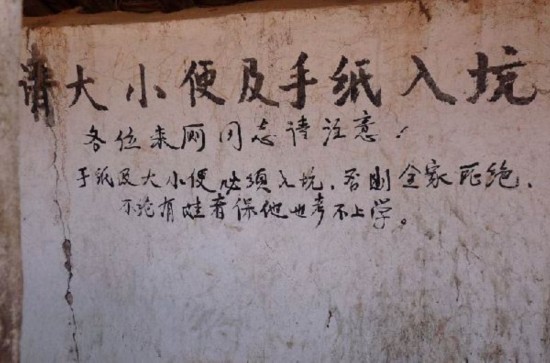 请大小便及手纸入坑
各位来厕同志请注意！
手纸及大小便必须入坑，否则全家死绝，
不论有娃者保他也考不上学。